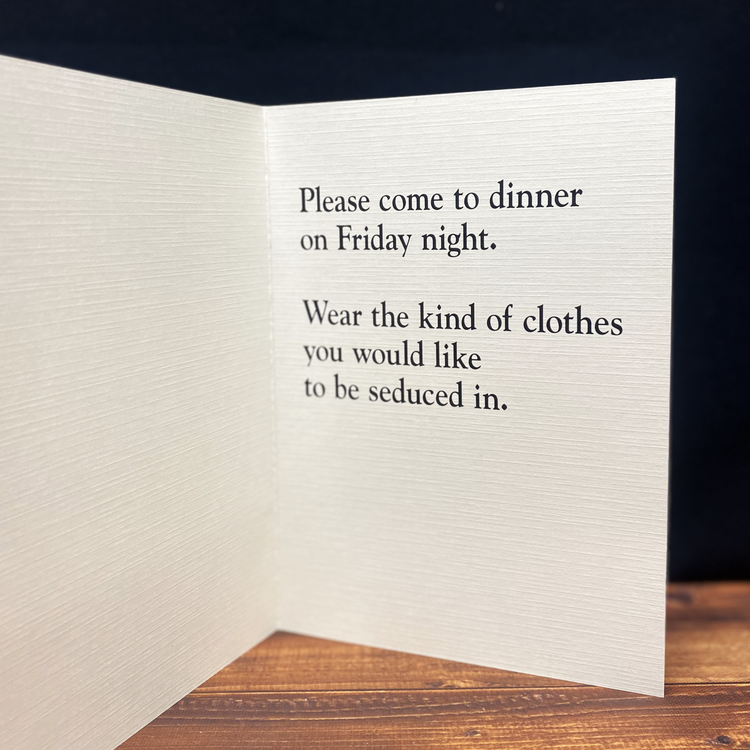 Please come to dinner
on Friday night.
Wear the kind of clothes
you would like
to be seduced in.